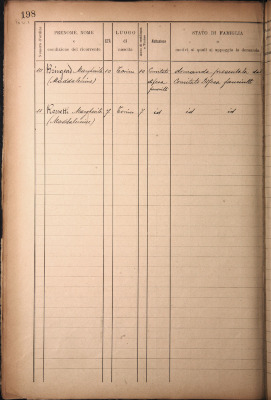 198
PRENOME, NOME
e
condizione del ricorrente
ETÀ
LUOGO
di
nascita
STATO DI FAMIGLIA
e
motivi ai quali si appoggia la domanda
Margherita 10 Torino 10 Comitato domanda presentata dal
(Maddalena) difesa Comitato Difesa fanciulli
fanciulli
Margherita 7 Torino 7 id id id
(Maddalena)